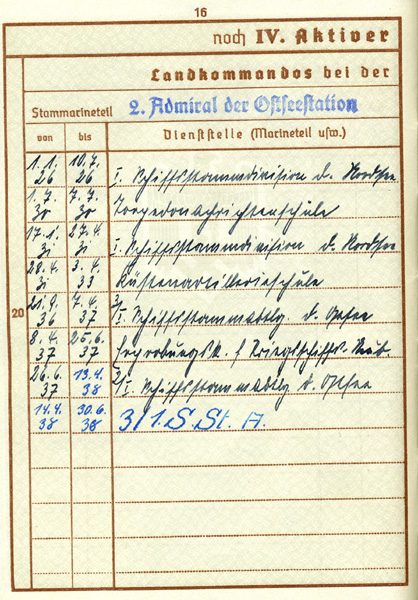 16
noch IV. Aktiver
Landkommandos bei der
Stammarineteil 2. Admiral der Ostseestation
von bis Dienststelle (Marineteil usw.)
1.1. 26 10.7. 26 I. Schiffsstammdivision d. Nordsee
1.7. 30 7.7. 30 Torpedonachrichtenschule
17.1. 31 27.4. 31 I. Schiffsstammdivision d. Nordsee
28.4. 31 3.4. 33 Küstenartillerieschule
20
21.9. 36 7.4. 37 3/I. Schiffsstammabtlg. d. Ostsee
8.4. 37 25.6. 37 f. Kriegsschiffs
26.6. 37 13.4. 38 3/I. Schiffsstammabtlg d. Ostsee
14.4. 38 30.6. 38 3/1.S.St.A.